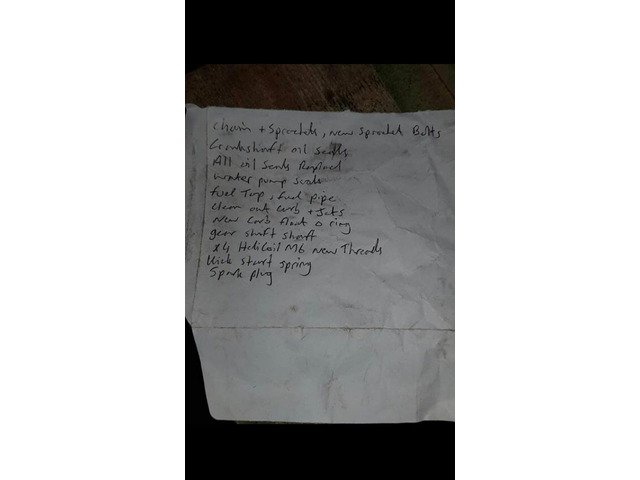 chain + sprockets, new sprocket Bolts
Crankshaft oil seals
All oil seals Replaced
water pump seals
fuel Tap, fuel pipe
clean out carb + Jets
New carb float o ring
gear shaft shaft
x4 HeliCoil M6 new Threads
Kick start spring
Spark plug